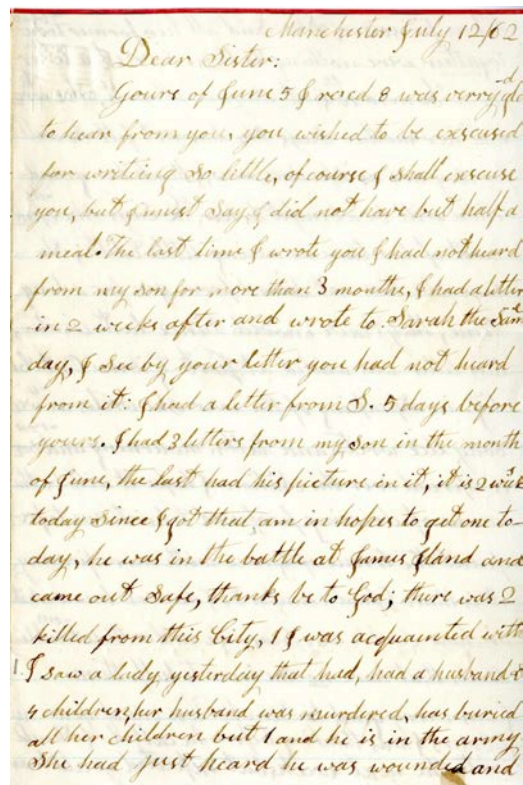 Manchester July 12/62
Dear Sister:
Yours of June 5 I recd 8 was verry glad
to hear from you, you wished to be exscused
for writing so little, of course I shall exscuse
you, but I must say I did not have but half a
meal. The last time I wrote you I had not heard
from my son for more than 3 months, I had a letter
in 2 weeks after and wrote to Sarah the same
day, I see by your letter you had not heard
from it: I had a letter from S. 5 days before
yours. I had 3 letters from my son in the month
of June, the last had his picture in it, it is 2 weeks
today since I got that, am in hopes to get one to-
day, he was in the battle at James Iland and
came out safe, thanks be to God; there was 2
killed from this City, 1 I was acquainted with
I saw a lady yesterday that had, had a husband &
4 children, her husband was murdered, has buried
all her children but 1 and he is in the army
She had just heard he was wounded and